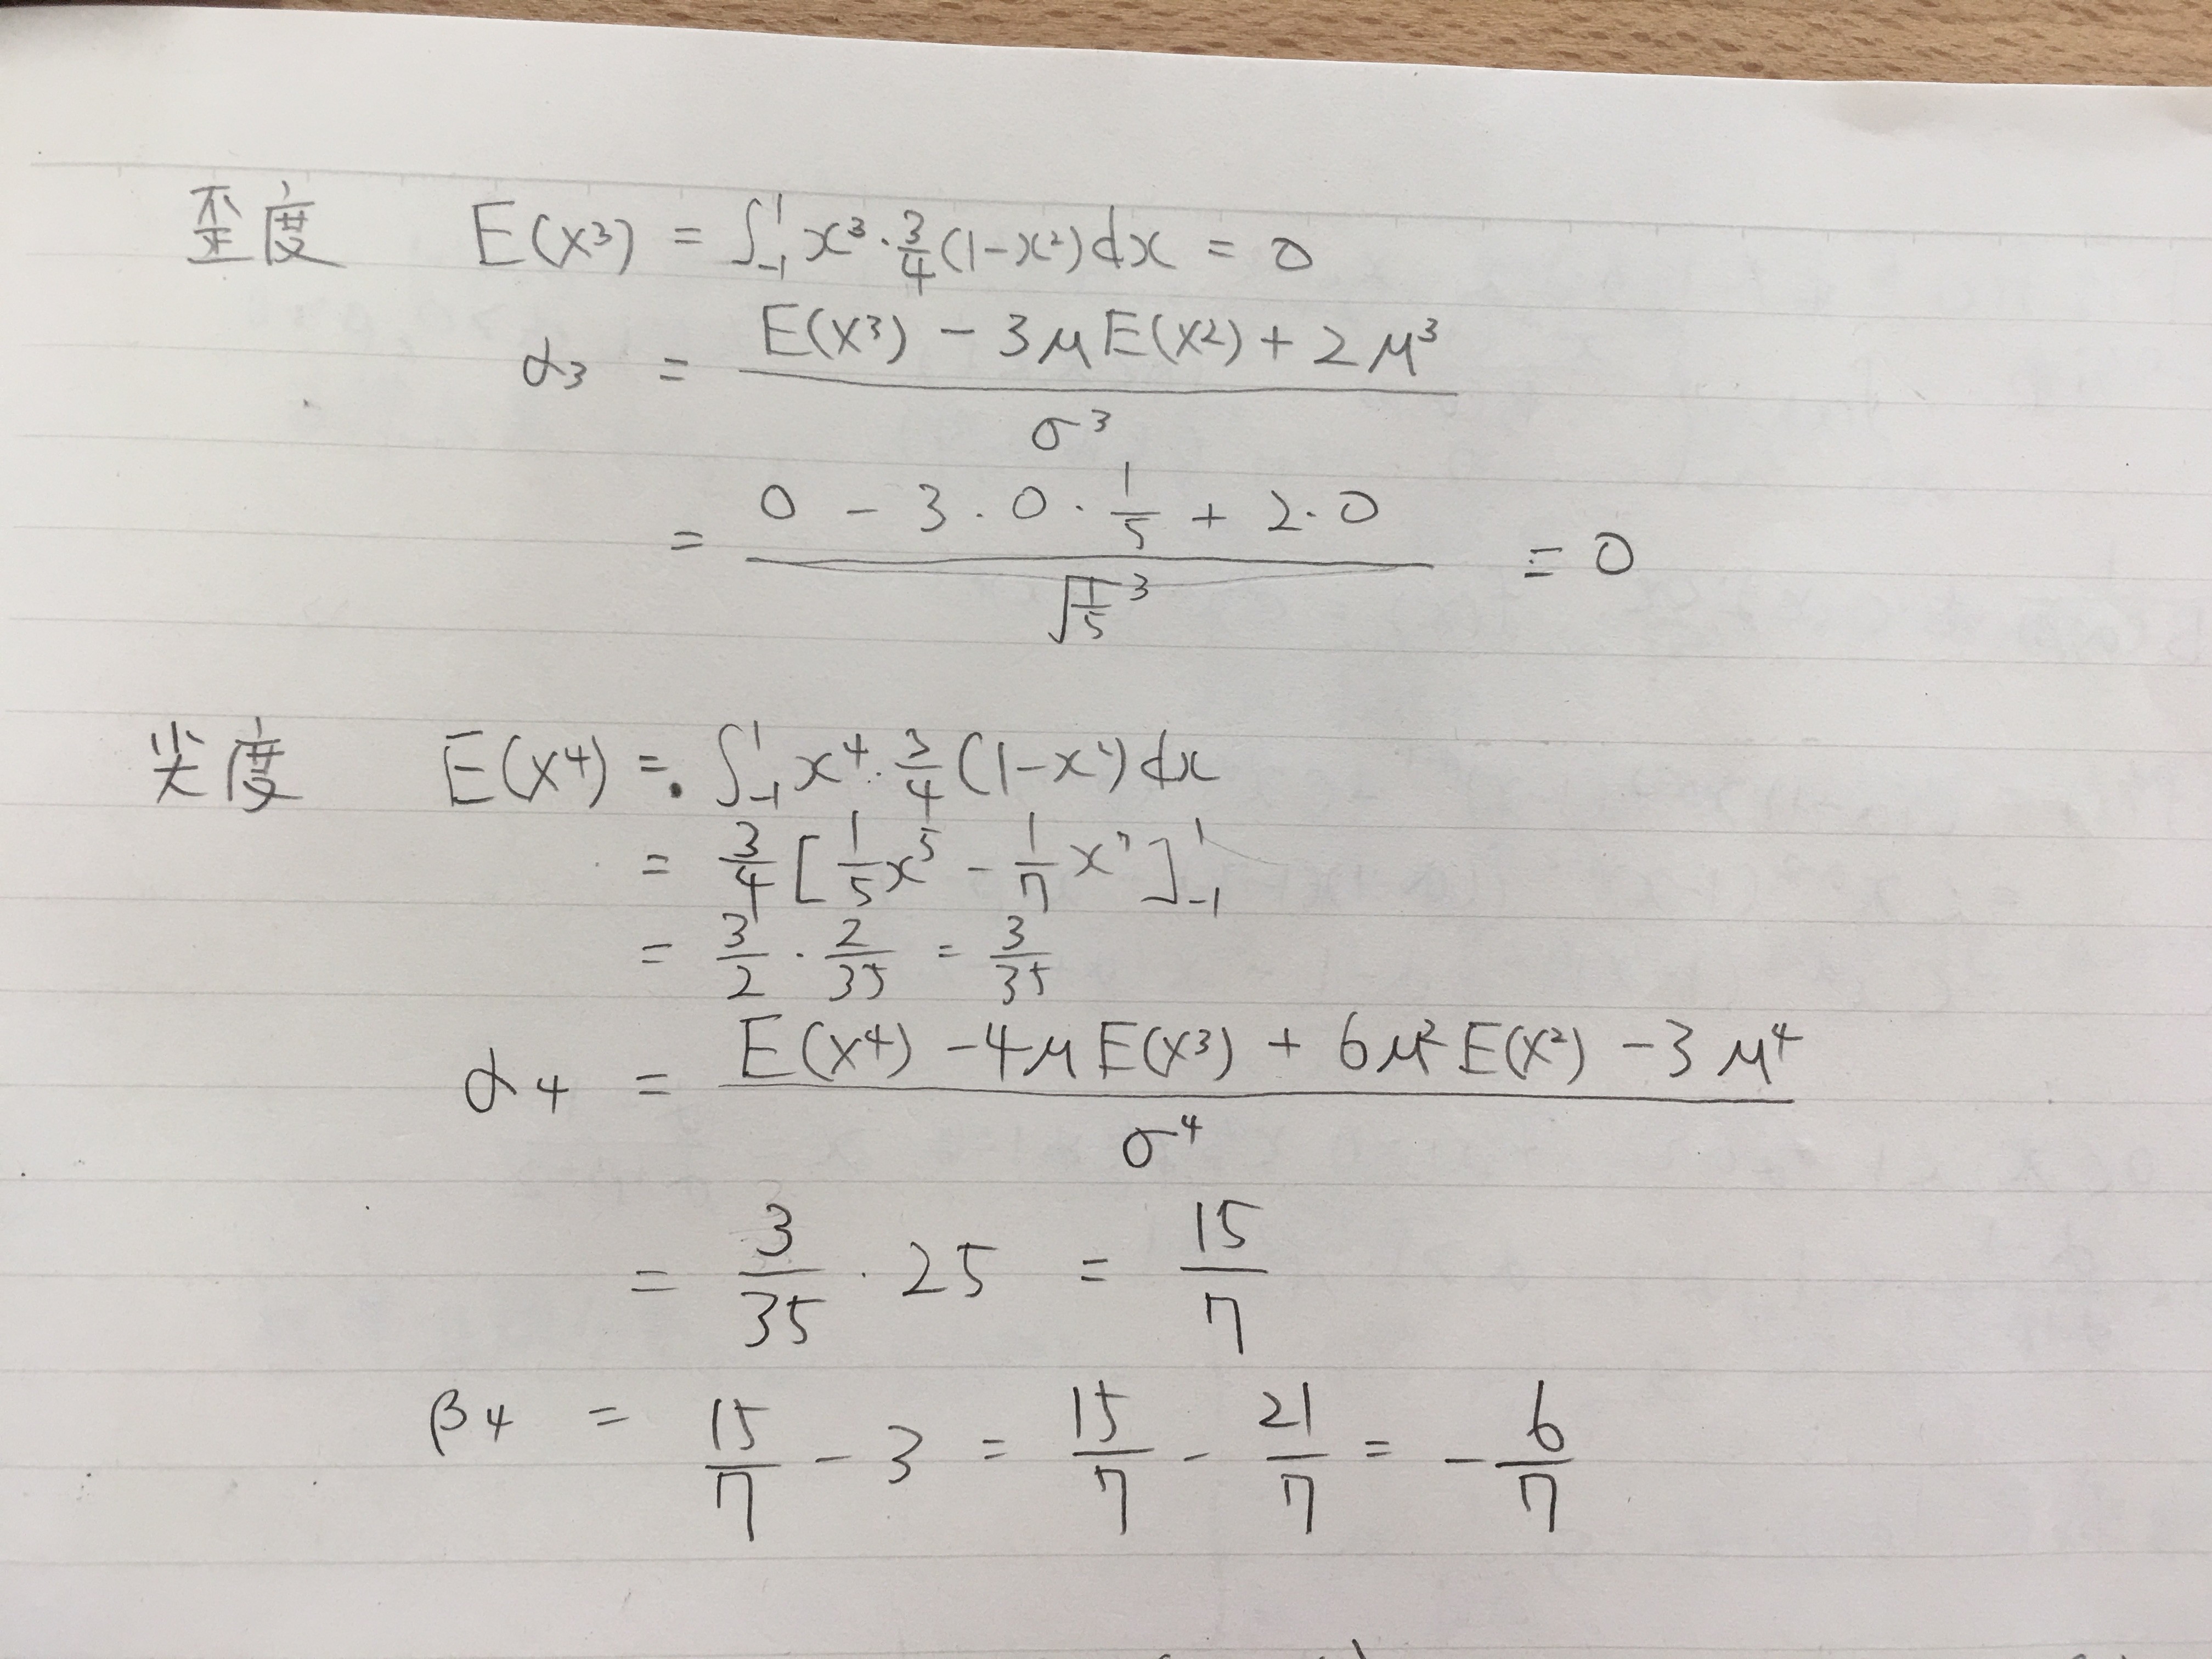 歪度 E(X³) = ∫₋₁¹ x³·3/4(1-x²)dx = 0
α₃ = (E(X³) - 3μE(X²) + 2μ³)/σ³
= (0 - 3·0·1/5 + 2·0)/√(1/5)³ = 0
尖度 E(X⁴) = ∫₋₁¹ x⁴·3/4(1-x²)dx
= 3/4[1/5x⁵ - 1/7x⁷]₋₁¹
= 3/2·2/35 = 3/35
α₄ = (E(X⁴) - 4μE(X³) + 6μ²E(X²) - 3μ⁴)/σ⁴
= 3/35·25 = 15/7
β₄ = 15/7 - 3 = 15/7 - 21/7 = -6/7